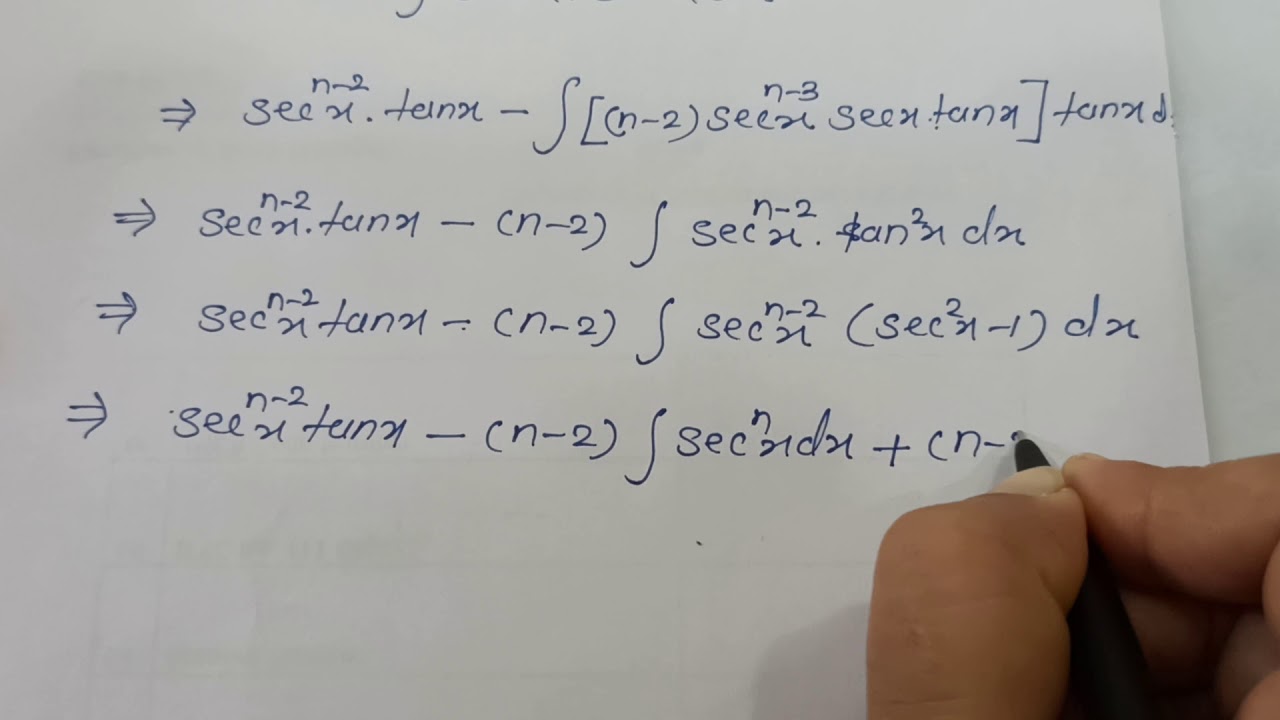 ⇒ sec^{n-2}x . tanx - ∫ [(n-2) sec^{n-3}x secx . tanx] tanx d
⇒ sec^{n-2}x . tanx - (n-2) ∫ sec^{n-2}x . tan²x dx
⇒ sec^{n-2}x tanx - (n-2) ∫ sec^{n-2}x (sec²x - 1) dx
⇒ sec^{n-2}x tanx - (n-2) ∫ sec^{n}x dx + (n-